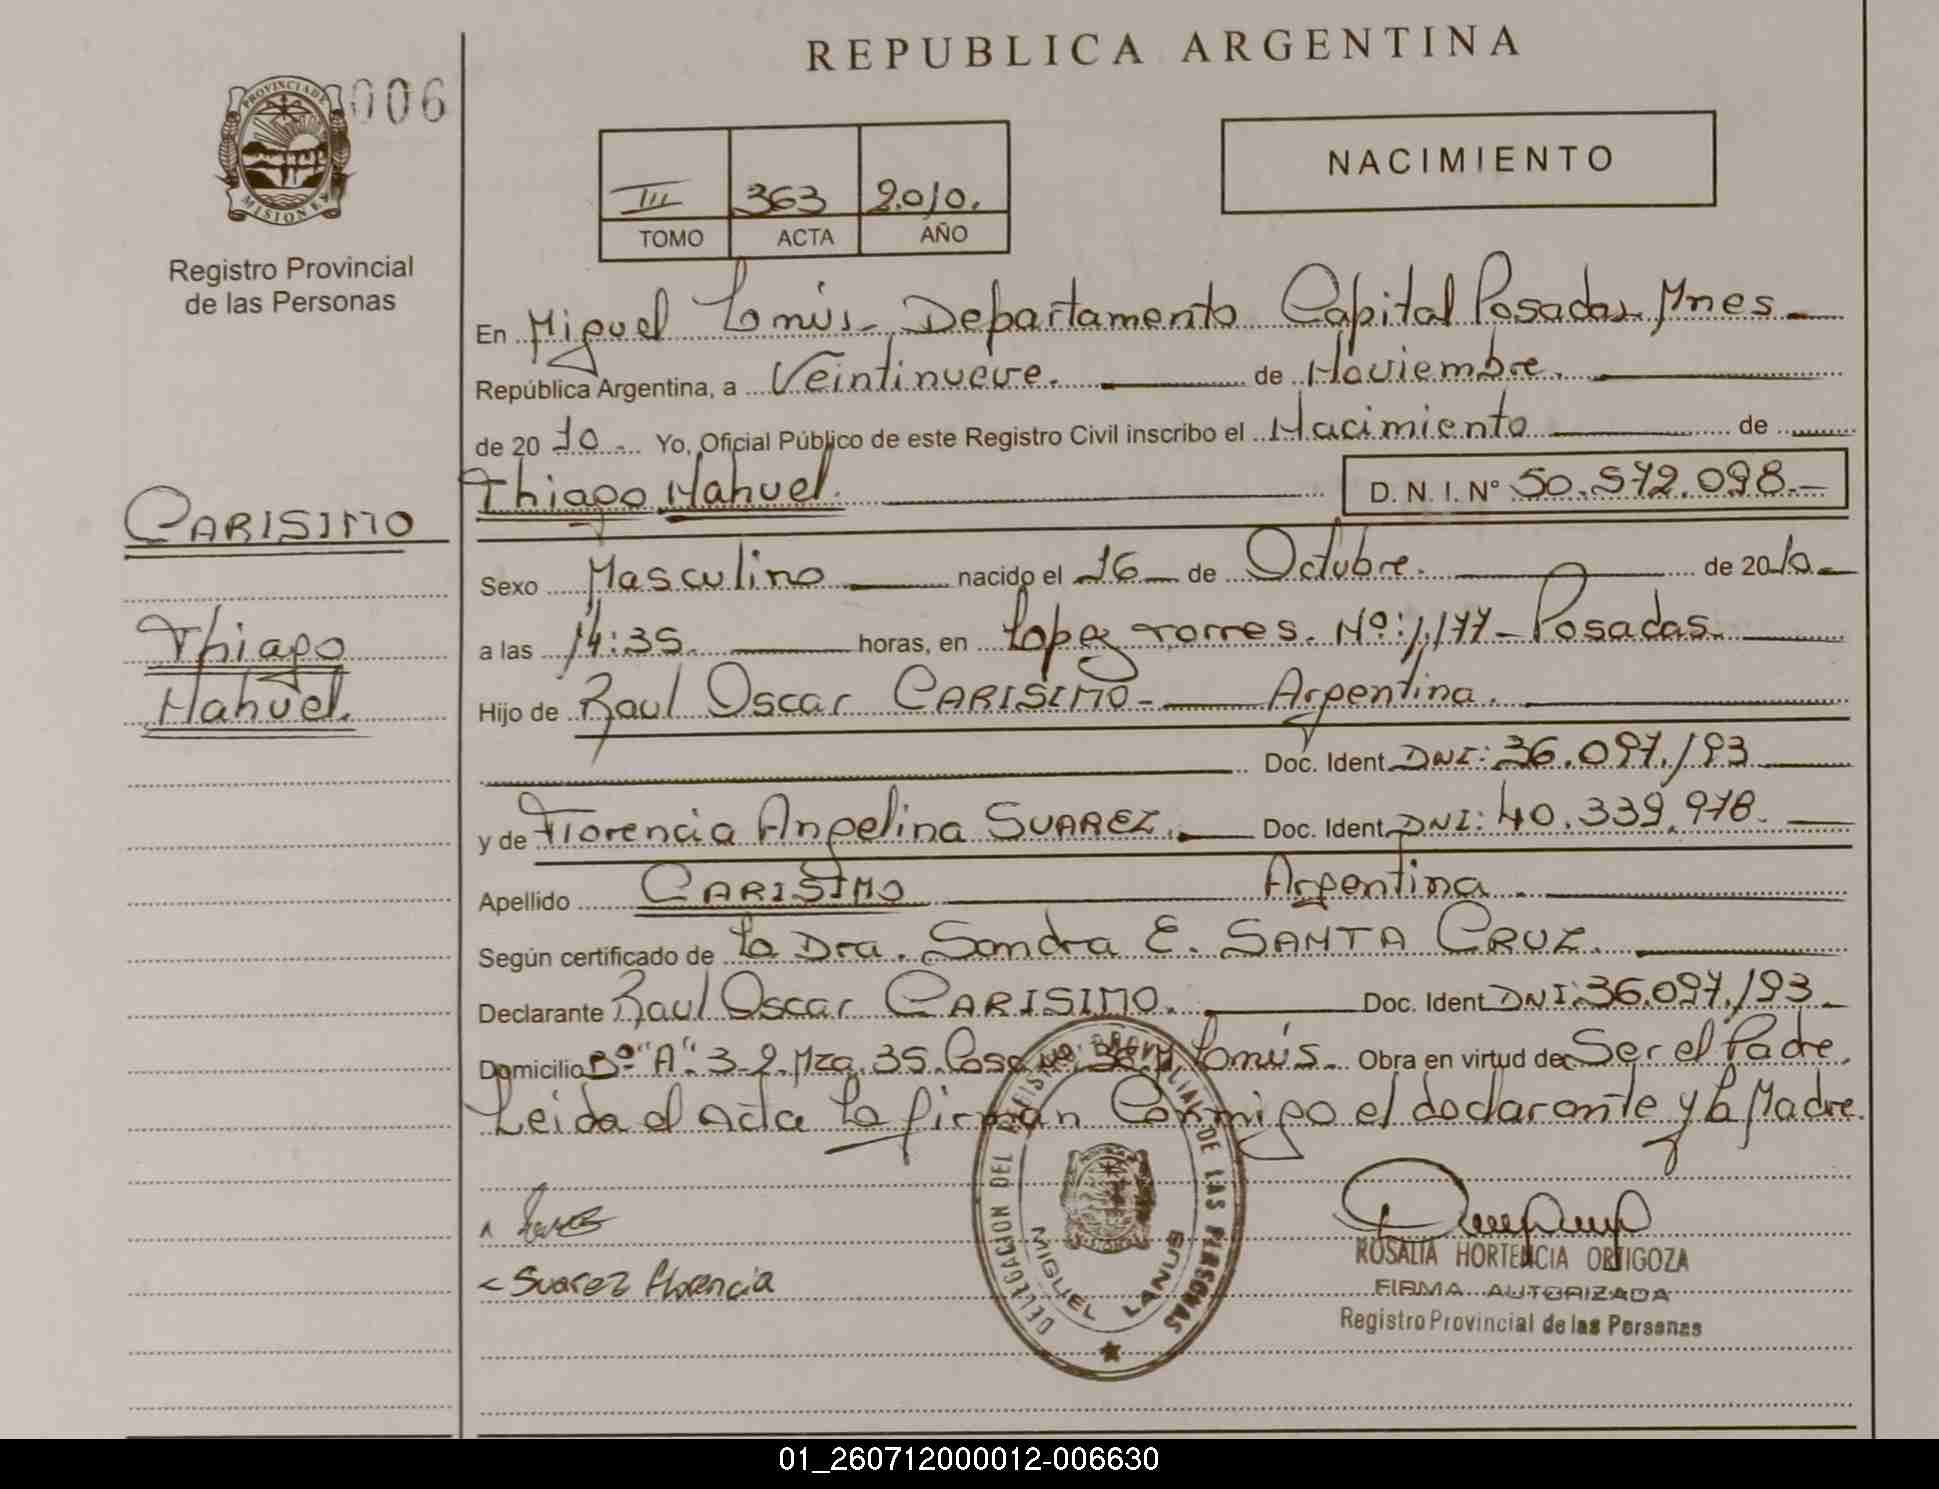 REPUBLICA ARGENTINA
006
PROVINCIA DE
MISIONES
Registro Provincial
de las Personas
III 363 2.010.
TOMO ACTA AÑO
NACIMIENTO
En Miguel Lanús - Departamento Capital Posadas Mnes -
República Argentina, a Veintinueve. de Noviembre.
de 20 10 Yo, Oficial Público de este Registro Civil inscribo el Nacimiento de
Thiago Nahuel. D. N. I. N° 50.572.098.-
CARISIMO
Thiago
Nahuel.
Sexo Masculino nacido el 16 de Octubre. de 2010
a las 14:35. horas, en Lopez Torres. Nº: 1.177 - Posadas.
Hijo de Raul Oscar CARISIMO - Argentina.
Doc. Ident. DNI: 36.097.193
y de Florencia Angelina SUAREZ. Doc. Ident. DNI: 40.339.978.
Apellido CARISIMO Argentina.
Según certificado de La Dra. Sandra E. SANTA CRUZ.
Declarante Raul Oscar CARISIMO. Doc. Ident. DNI: 36.097.193
Domicilio Bº "A" 3-2. Mza. 35. Casa Nº 38. M. Lanús. Obra en virtud de Ser el Padre.
Leida el Acta La firman Conmigo el declarante y la Madre.
Suarez Florencia
DELEGACION DEL REGISTRO PROVINCIAL DE LAS PERSONAS
MIGUEL LANUS
ROSALIA HORTENCIA ORTIGOZA
FIRMA AUTORIZADA
Registro Provincial de las Personas
01_260712000012-006630